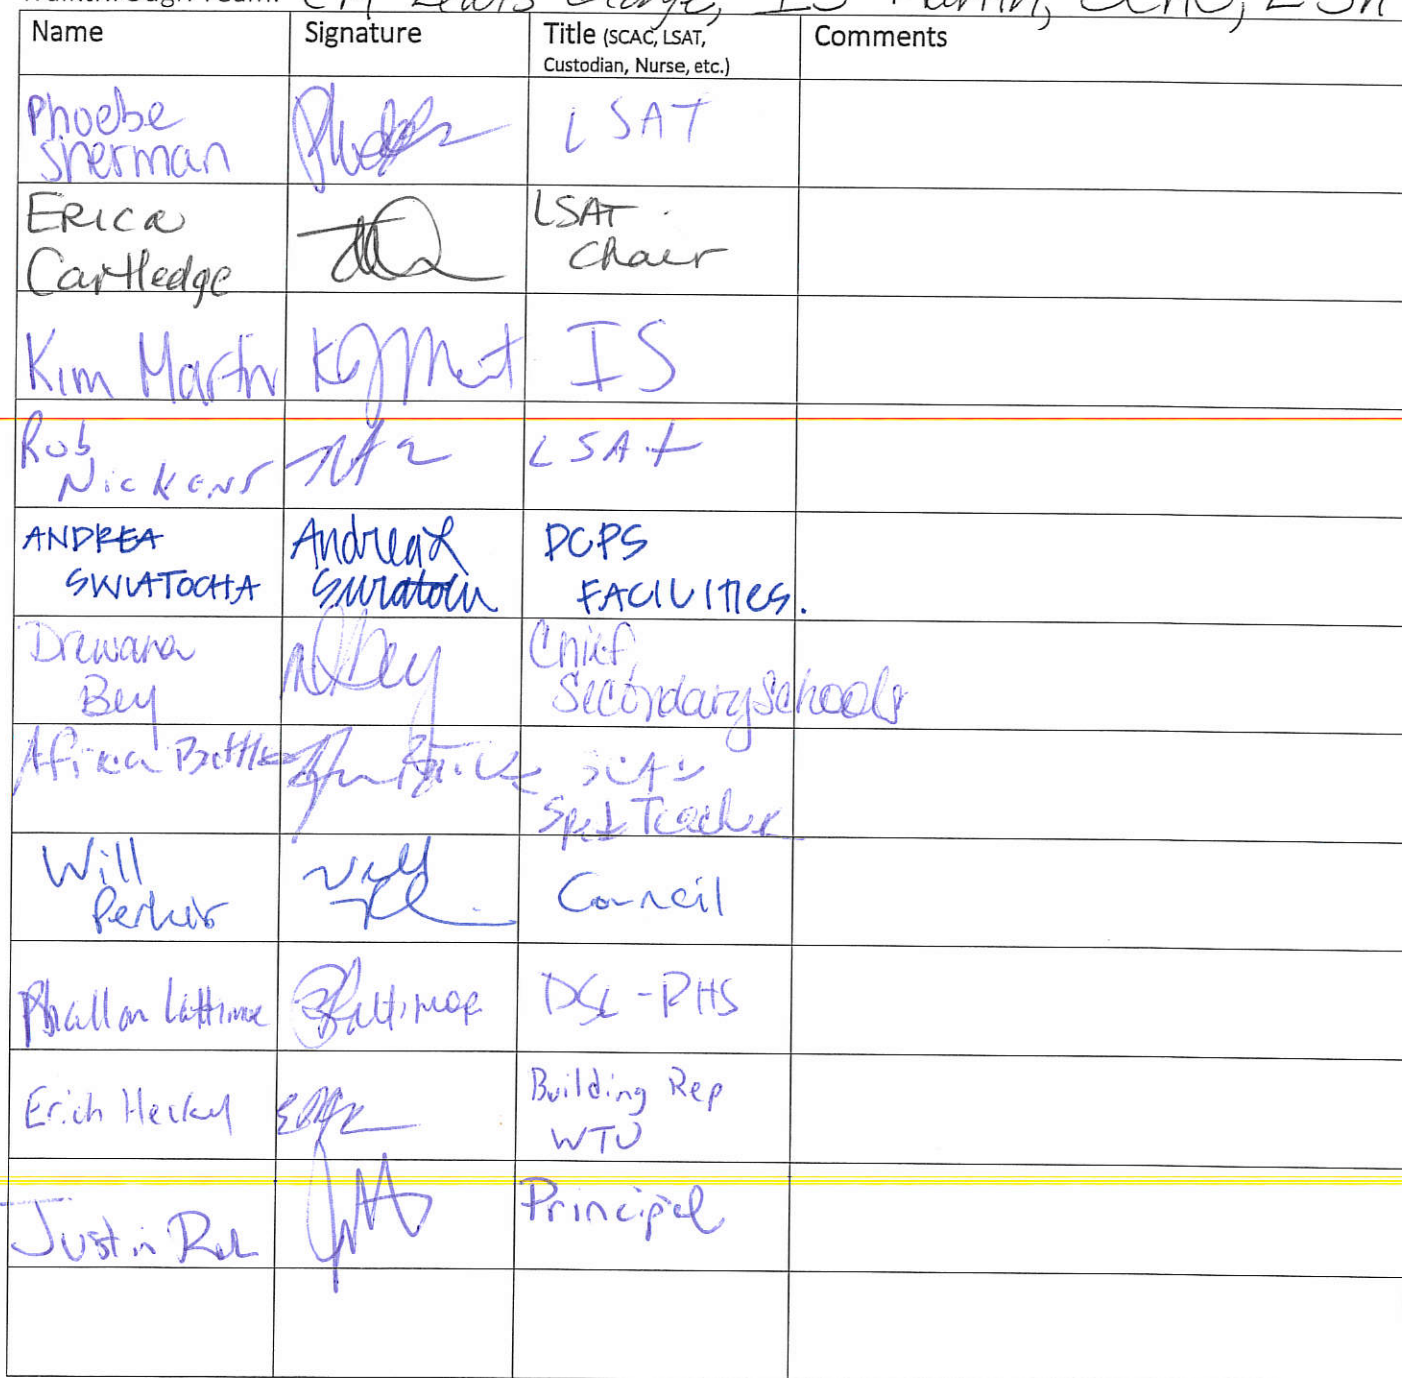 Walkthrough Team: CM Lewis George, IS Martin, SCAC, LSAT
Name Signature Title (SCAC, LSAT,
Custodian, Nurse, etc.) Comments
Phoebe
Sherman
LSAT
ERICA
Cartledge
LSAT
Chair
Kim Martin
IS
Rob
Nickens
LSAT
ANDREA
SWIATOCHA
Andrea L
Swiatocha
DCPS
FACILITIES.
Drewana
Bey
Bey
Chief,
Secondary Schools
Afrika Battle
SCAC
Sped Teacher
Will
Perkins
Will
Council
Phallon Lattimore
Lattimore
DSL-RHS
Erich Heckel
Building Rep
WTU
Justin
Principal